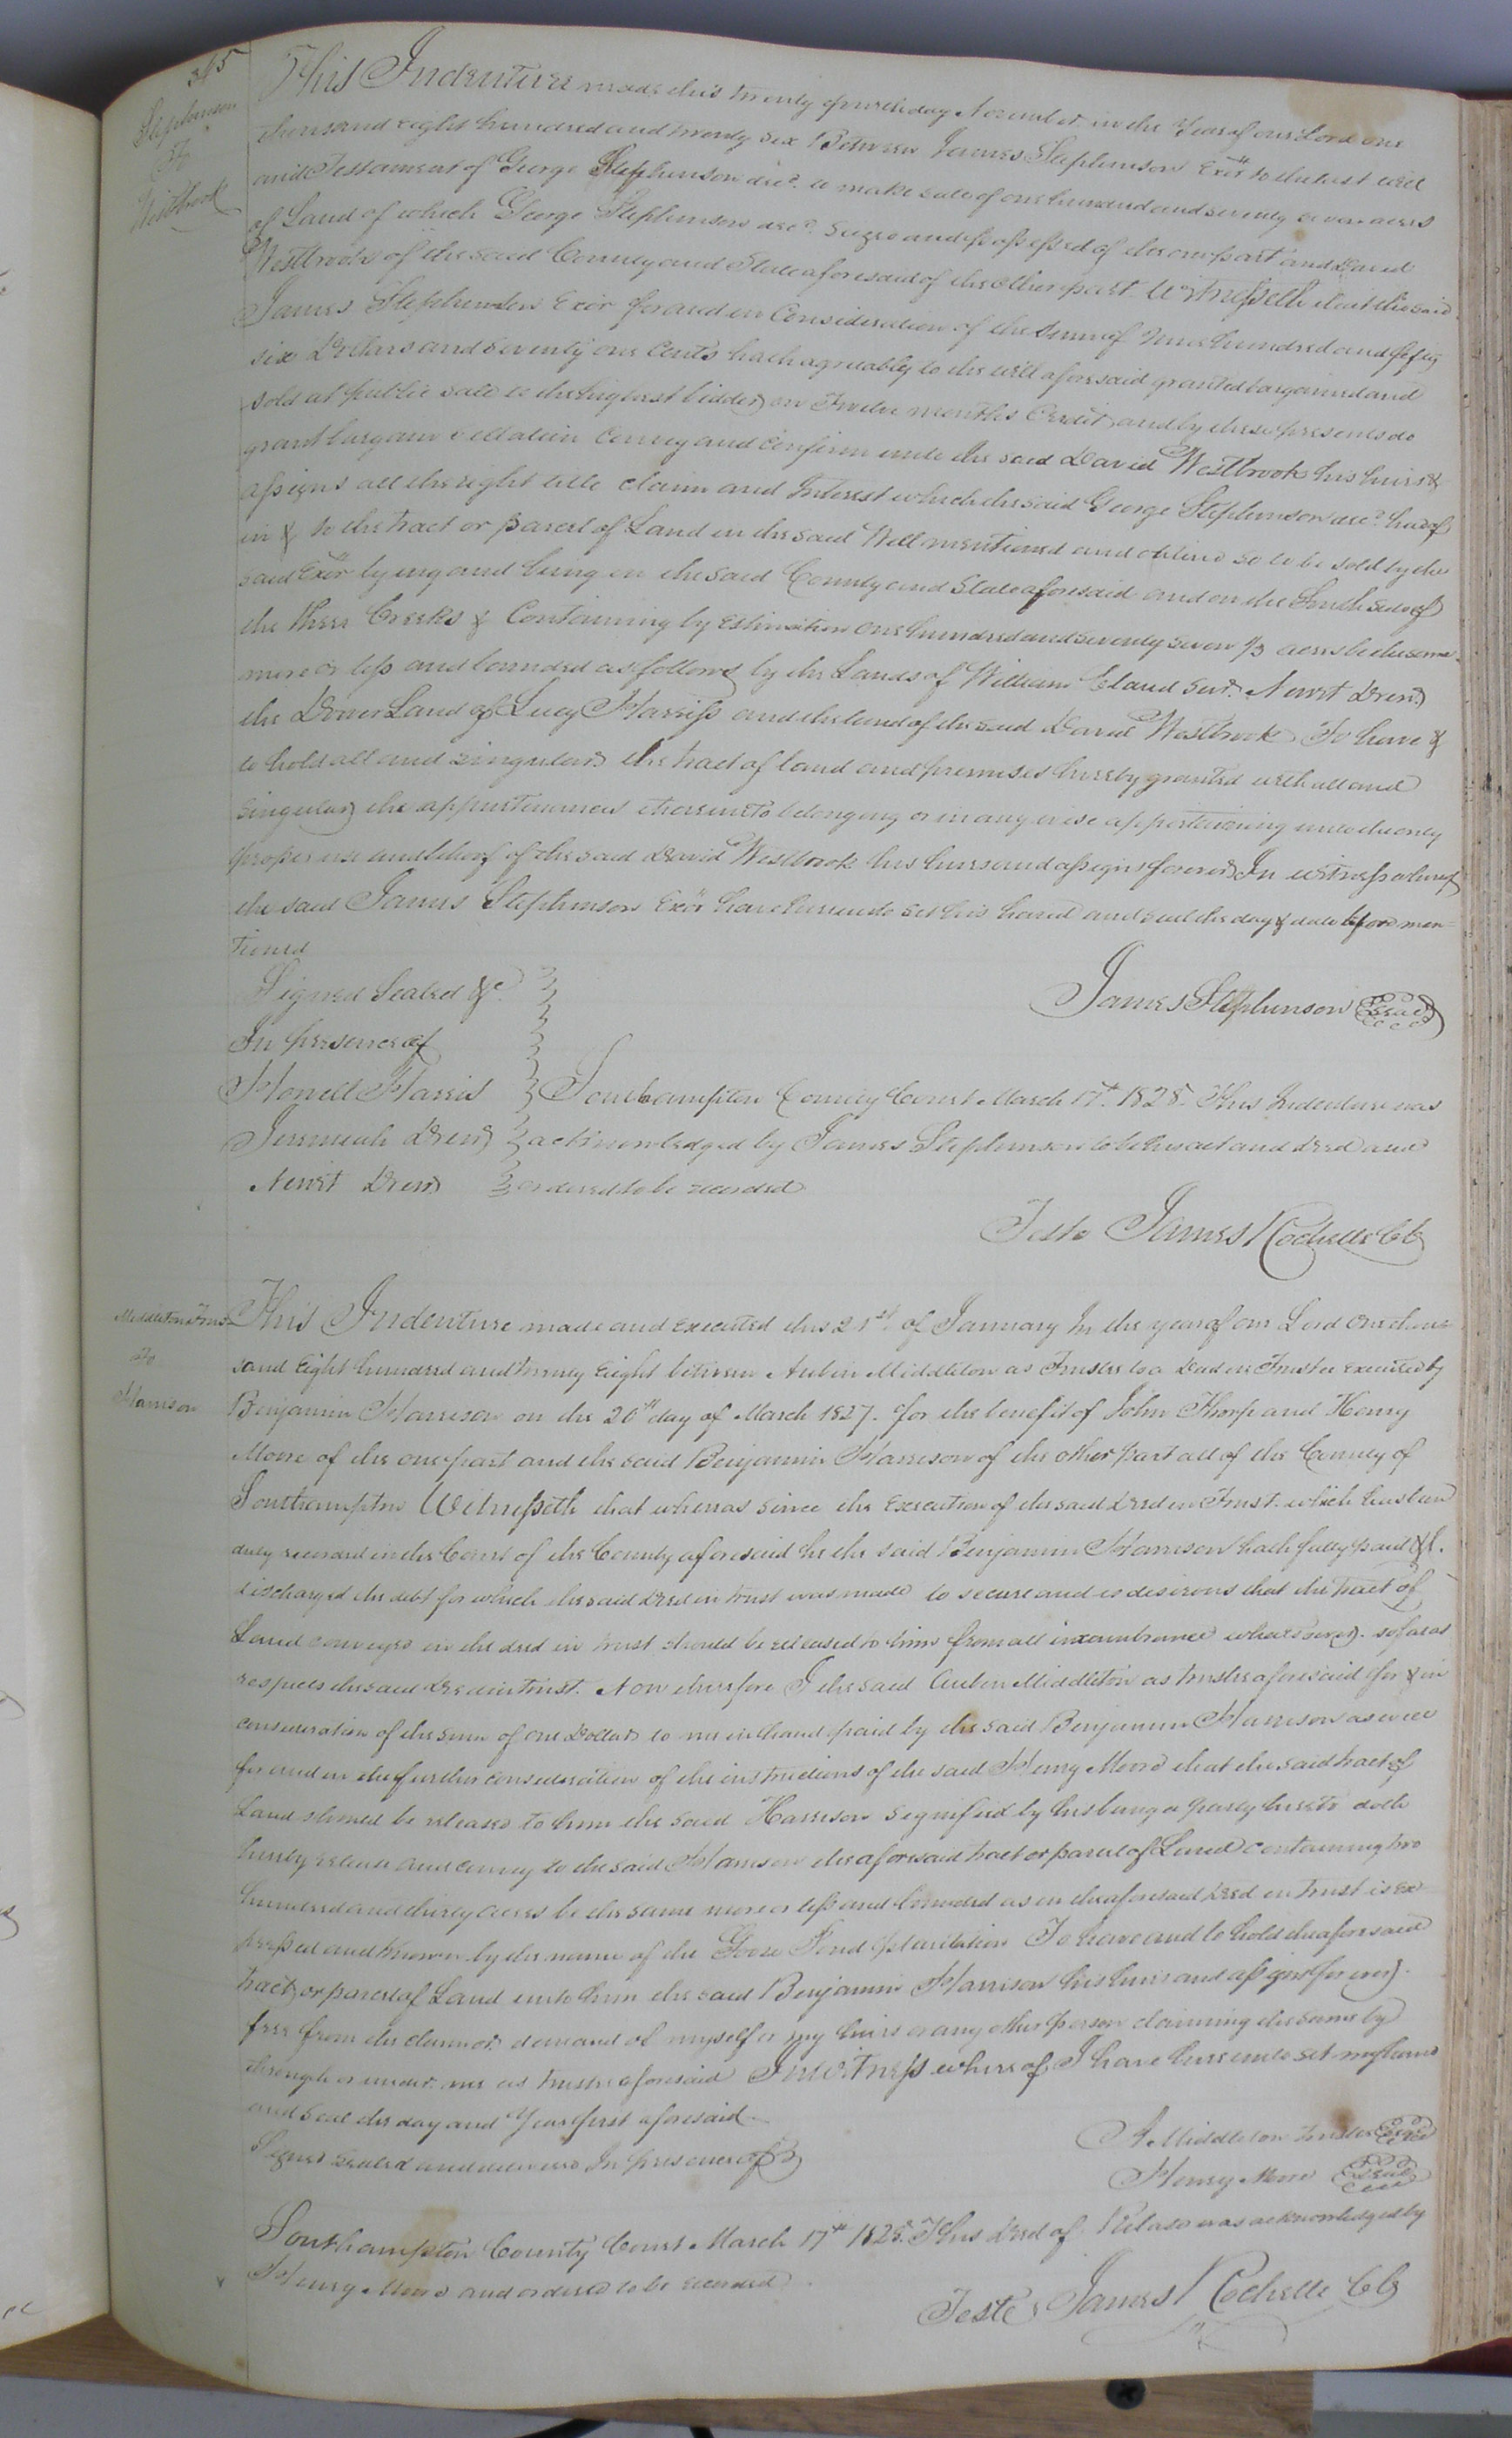 365
Stephenson
To
Westbrook
This Indenture made this twenty fourth day November in the Year of our Lord one
thousand eight hundred and twenty six Between James Stephenson Exor to the last will
and Testament of George Stephenson decd. to make sale of one hundred and seventy seven acres
of Land of which George Stephenson decd. seized and possessed of the one part and David
Westbrook of the said County and State aforesaid of the other part Witnesseth that the said
James Stephenson Exor for and in Consideration of the sum of Nine hundred and fifty
six Dollars and seventy one Cents hath agreeably to the will aforesaid granted bargained and
sold at public sale to the highest bidder on Twelve months Credit and by these presents do
grant bargain sell alien Convey and Confirm unto the said David Westbrook his heirs &
assigns all the right title claim and Interest which the said George Stephenson decd. had of
in & to the tract or parcel of Land in the said Will mentioned and so to be sold by the
said Exor lying and being in the said County and State aforesaid and on the South side of
the Three Creeks & Containing by Estimation one hundred and seventy seven 1/3 acres be the same
more or less and bounded as follows by the Lands of William Claud Senr. Newit Drew
the Dower Land of Lucy Harriss and the land of the said David Westbrook To have &
to hold all and singular the tract of land and premises hereby granted with all and
singular the appurtenances thereunto belonging or in any wise appertaining unto the only
proper use and behoof of the said David Westbrook his heirs and assigns forever In witness whereof
the said James Stephenson Exor have hereunto set his hand and seal the day & date before men-
tioned
Signed Sealed &c
In presence of
James Stephenson Seal
Howell Harris
Jeremiah Drew
Newit Drew
Southampton County Court March 17th. 1828. This Indenture was
acknowledged by James Stephenson to be his act and deed and
ordered to be recorded
Teste James Rochelle CC
Middleton Trus
To
Harrison
This Indenture made and executed this 21st. of January In the year of our Lord One thou-
sand Eight hundred and twenty Eight between Aubin Middleton as Trustee to a Deed in Trustee executed by
Benjamin Harrison on the 20th day of March 1827. for the benefit of John Thorp and Henry
Moore of the one part and the said Benjamin Harrison of the other part all of the County of
Southampton Witnesseth that whereas since the Execution of the said deed in Trust which has been
duly recorded in the Court of the County aforesaid he the said Benjamin Harrison hath fully paid &
discharged the debt for which the said deed in trust was made to secure and is desirous that the tract of
Land conveyed in the deed in trust should be released to him from all incumbrance whatsoever. so far as
respects the said deed in trust. Now therefore I the said Aubin Middleton as trustee aforesaid for & in
consideration of the sum of one Dollar to me in hand paid by the said Benjamin Harrison as well
for and in the further consideration of the instructions of the said Henry Moore that the said tract of
Land should be released to him the said Harrison signified by his being a party hereto doth
hereby release and convey to the said Harrison the aforesaid tract or parcel of Land containing two
hundred and thirty acres be the same more or less and bounded as in the aforesaid deed in trust is ex-
pressed and known by the name of the Goose Pond plantation To have and to hold the aforesaid
tract or parcel of Land unto him the said Benjamin Harrison his heirs and assigns forever.
free from the claim or demand of myself or my heirs or any other person claiming the same by
through or under me as trustee aforesaid In witness whereof I have hereunto set my hand
and seal the day and Year first aforesaid
Signed sealed and delivered In presence of
A Middleton trustee Seal
Henry Moore Seal
Southampton County Court March 17th 1828. This deed of Release was acknowledged by
Henry Moore and ordered to be recorded
Teste James Rochelle CC